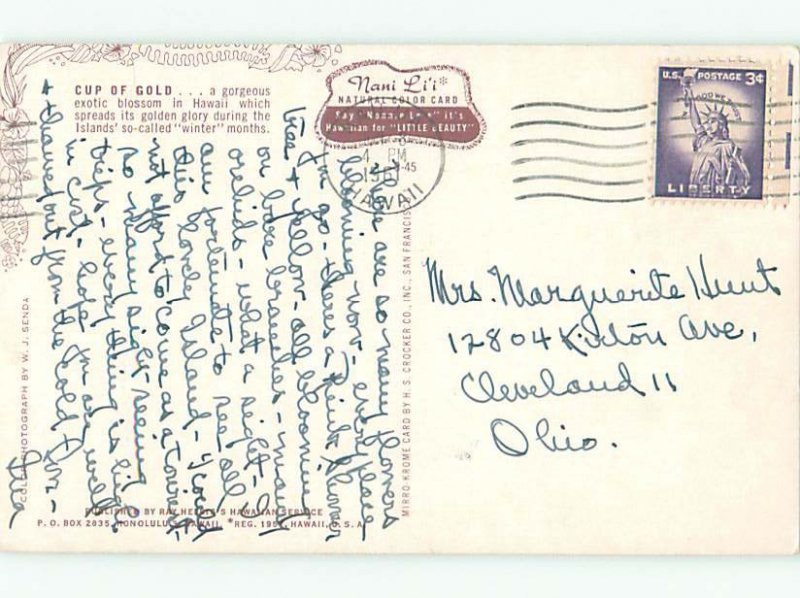 CUP OF GOLD . . . a gorgeous
exotic blossom in Hawaii which
spreads its golden glory during the
Islands' so-called "winter" months.
Nani Li'i*
NATURAL COLOR CARD
Say it's
Hawaiian for "LITTLE BEAUTY"
PM
HAWAII
U.S. POSTAGE 3¢
IN GOD WE TRUST
LIBERTY
There are so many flowers
blooming now - everyplace
you go - there's a flower
tree + yellow - all blooming
on bare branches - many
orchids - what a sight - I
am fortunate to see all
this lovely Island - I could
not afford to come as a tourist -
so many sight-seeing
trips - every thing is high
in cost - hope you are well
+ thawed out from the cold
Mrs. Marguerite Hunt
12804 Kirton Ave,
Cleveland 11
Ohio.
COLOR PHOTOGRAPH BY W. J. SENDA
MIRRO-KROME CARD BY H. S. CROCKER CO., INC., SAN FRANCISCO
PUBLISHED BY RAY HELBIG'S HAWAIIAN SERVICE
P. O. BOX 2835, HONOLULU, HAWAII. *REG. HAWAII, U.S.A.